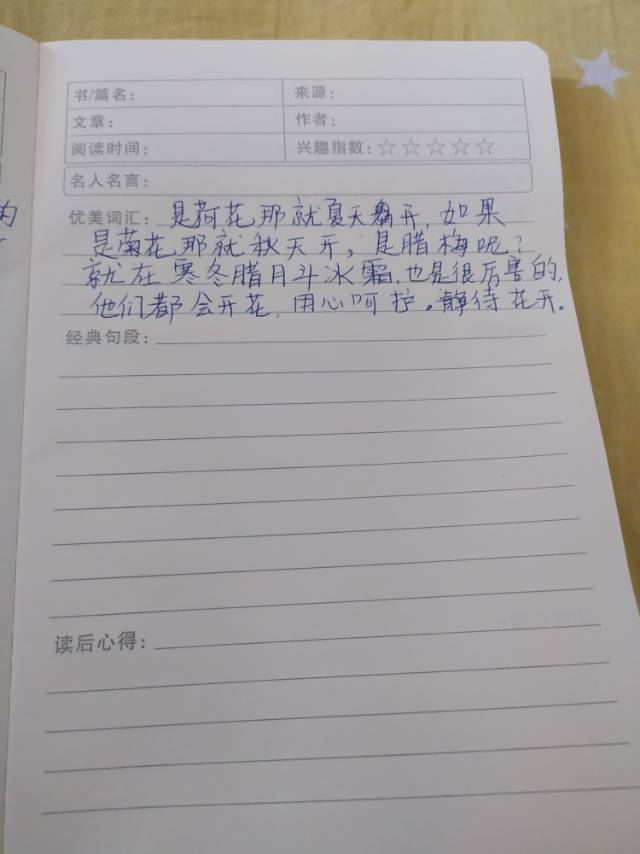 书/篇名: 来源:
文章: 作者:
阅读时间: 兴趣指数:☆☆☆☆☆
名人名言:
优美词汇: 是荷花,那就夏天开,如果
是菊花,那就秋天开,是腊梅呢?
就在寒冬腊月斗冰霜,也是很厉害的,
他们都会开花,用心呵护。静待花开.
经典句段:
读后心得: